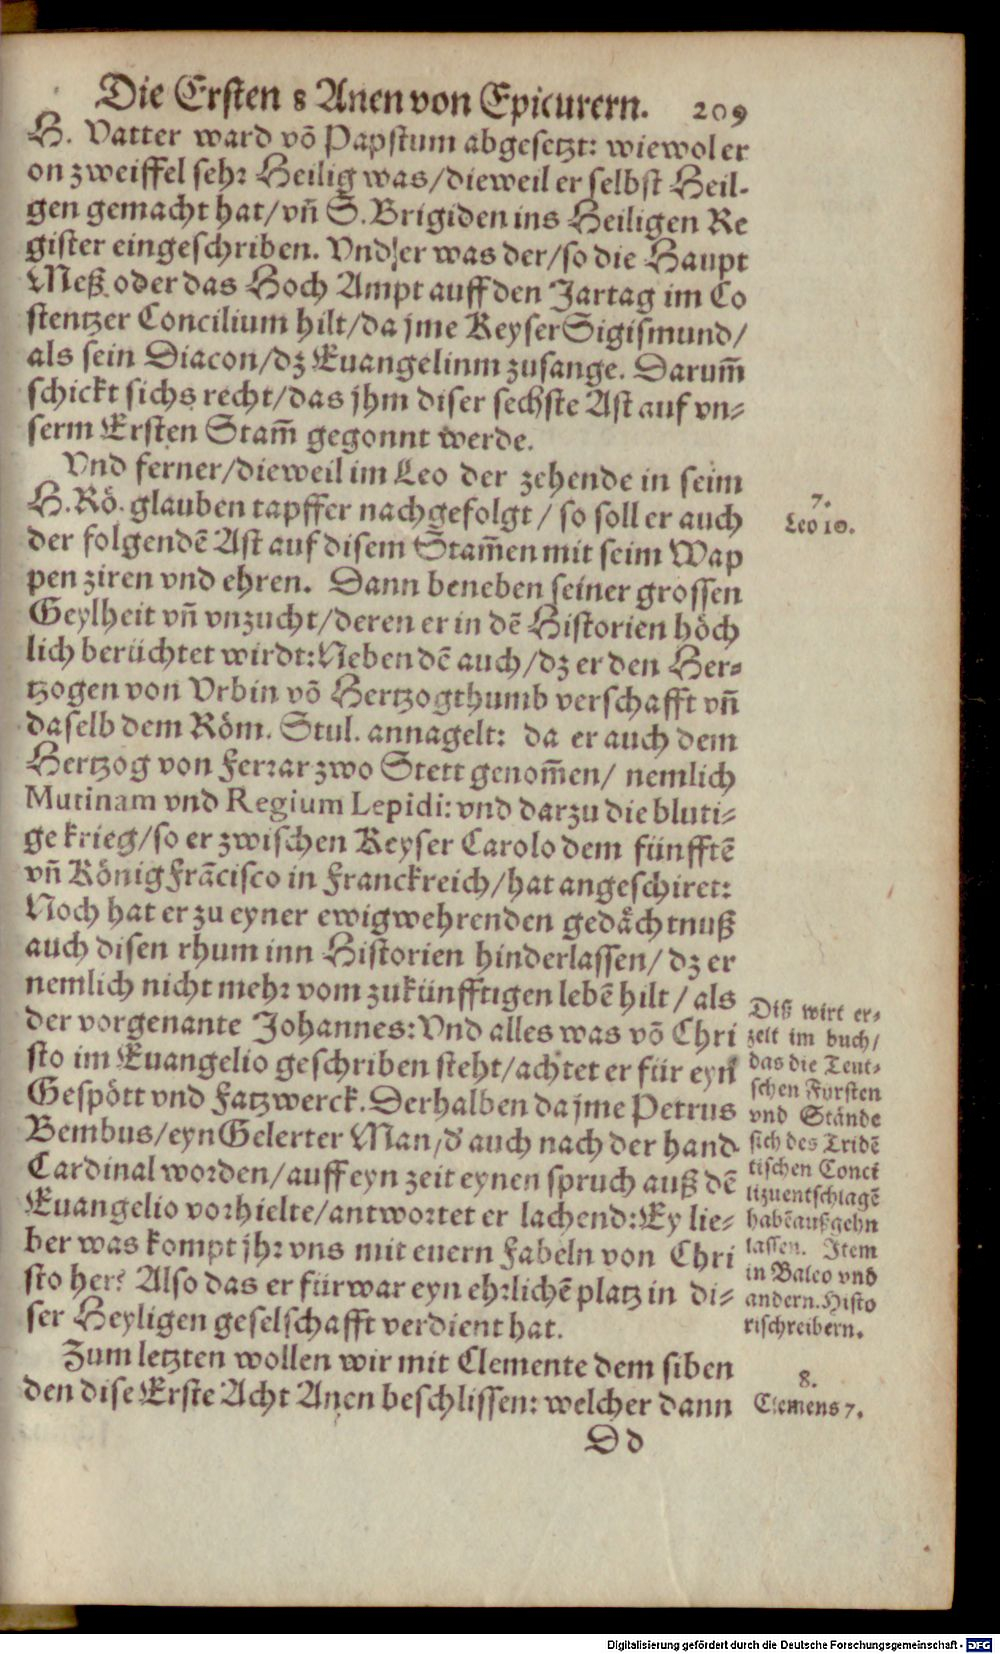 Die Ersten 8 Anen von Epicurern. 209
H. Vatter ward võ Papstum abgesetzt: wiewol er
on zweiffel sehr Heilig was/dieweil er selbst Heil-
gen gemacht hat/vñ S. Brigiden ins Heiligen Re
gister eingeschriben. Vnd er was der/so die Haupt
Meß oder das Hoch Ampt auff den Jartag im Co
stentzer Concilium hilt/da jme Keyser Sigismund/
als sein Diacon/dz Euangelinm zusange. Darum̃
schickt sichs recht/das jhm diser sechste Ast auf vn-
serm Ersten Stam̃ gegonnt werde.
Vnd ferner/dieweil im Leo der zehende in seim
H. Rö. glauben tapffer nachgefolgt/ so soll er auch
der folgendẽ Ast auf disem Stam̃en mit seim Wap
pen ziren vnd ehren. Dann beneben seiner grossen
Geylheit vñ vnzucht/deren er in dẽ Historien höch
lich berüchtet wirdt: Neben dẽ auch/dz er den Her-
tzogen von Vrbin võ Hertzogthumb verschafft vñ
daselb dem Röm. Stul. annagelt: da er auch dem
Hertzog von Ferrar zwo Stett genom̃en/ nemlich
Mutinam vnd Regium Lepidi: vnd darzu die bluti-
ge krieg/so er zwischen Keyser Carolo dem fünfftẽ
vñ König Frãcisco in Franckreich/hat angeschiret:
Noch hat er zu eyner ewigwehrenden gedächtnuß
auch disen rhum inn Historien hinderlassen/ dz er
nemlich nicht mehr vom zukünfftigen lebẽ hilt/ als
der vorgenante Johannes: Vnd alles was võ Chri
sto im Euangelio geschriben steht/achtet er für eyn
Gespött vnd Fatzwerck. Derhalben da jme Petrus
Bembus/eyn Gelerter Man/d' auch nach der hand
Cardinal worden/auff eyn zeit eynen spruch auß dẽ
Euangelio vorhielte/antwortet er lachend: Ey lie-
ber was kompt jhr vns mit euern Fabeln von Chri
sto her? Also das er fürwar eyn ehrlichẽ platz in di-
ser Heyligen geselschafft verdient hat.
Zum letzten wollen wir mit Clemente dem siben
den dise Erste Acht Anen beschlissen: welcher dann
Dd
7.
Leo 10.
Diß wirt er-
zelt im buch/
das die Teut-
schen Fürsten
vnd Stände
sich des Tridẽ
tischen Conci
lizuentschlagẽ
habẽ außgehn
lassen. Item
in Baleo vnd
andern. Histo
rischreibern.
8.
Clemens 7.
Digitalisierung gefördert durch die Deutsche Forschungsgemeinschaft - DFG